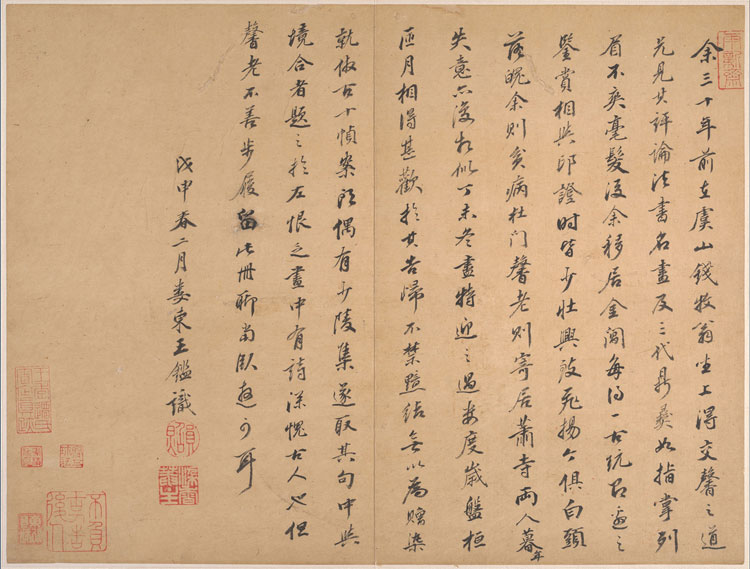 余三十年前在虞山錢牧翁坐上得交馨之道
兄見其評論法書名畫及三代鼎彝如指掌列
眉不爽毫髮後余移居金閶每得一古玩
鑒賞相與印證時皆少壯興致飛揚今俱白頭
落魄余則貧病杜門馨老則寄居蕭寺兩人暮年
失意亦復相似丁未冬盡特迎之過婁度歲盤桓
匝月相得甚歡於其告歸不禁黯結無以為贈染
就倣古十幀案頭偶有少陵集遂取其句中與
境合者題之於左恨乏畫中有詩深愧古人也但
馨老不善步履留此冊聊當臥遊可耳
戊申春二月婁東王鑑識
染香菴主